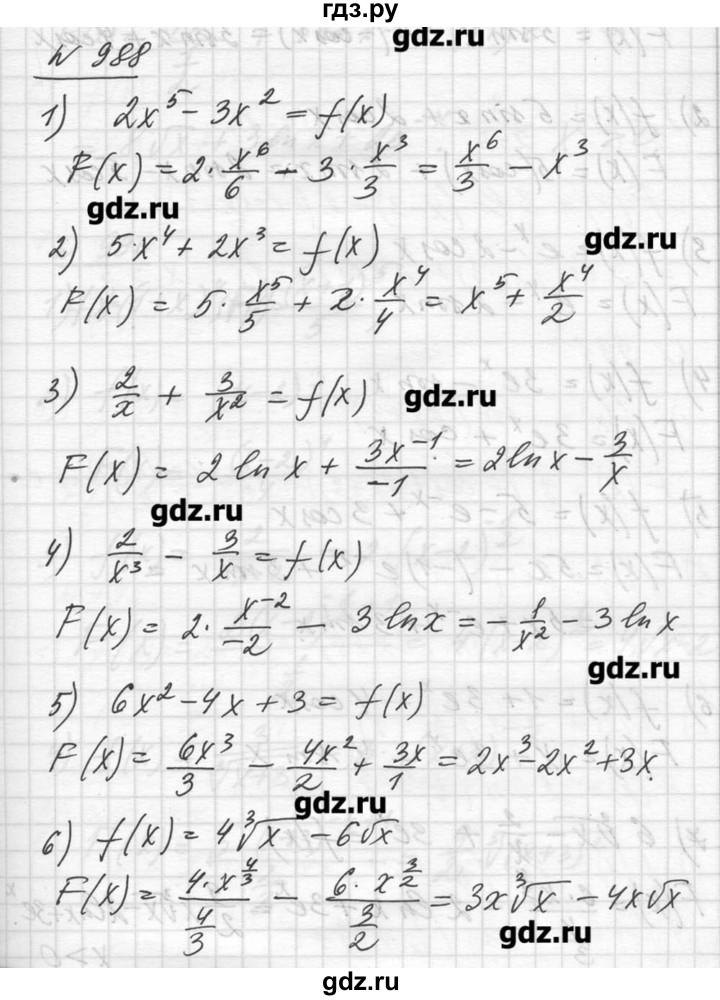 гдз.ру
gdz.ru
N 988
1) 2x⁵ - 3x² = f(x)
F(x) = 2 · x⁶/6 - 3 · x³/3 = x⁶/3 - x³
gdz.ru
gdz.ru
2) 5·x⁴ + 2x³ = f(x)
F(x) = 5 · x⁵/5 + 2 · x⁴/4 = x⁵ + x⁴/2
3) 2/x + 3/x² = f(x)
gdz.ru
F(x) = 2 ln x + 3x⁻¹/-1 = 2 ln x - 3/x
gdz.ru
4) 2/x³ - 3/x = f(x)
F(x) = 2 · x⁻²/-2 - 3 ln x = - 1/x² - 3 ln x
gdz.ru
5) 6x² - 4x + 3 = f(x)
F(x) = 6x³/3 - 4x²/2 + 3x/1 = 2x³ - 2x² + 3x.
gdz.ru
6) f(x) = 4∛x - 6√x
F(x) = 4·x^(4/3)/(4/3) - 6·x^(3/2)/(3/2) = 3x∛x - 4x√x
gdz.ru
gdz.ru